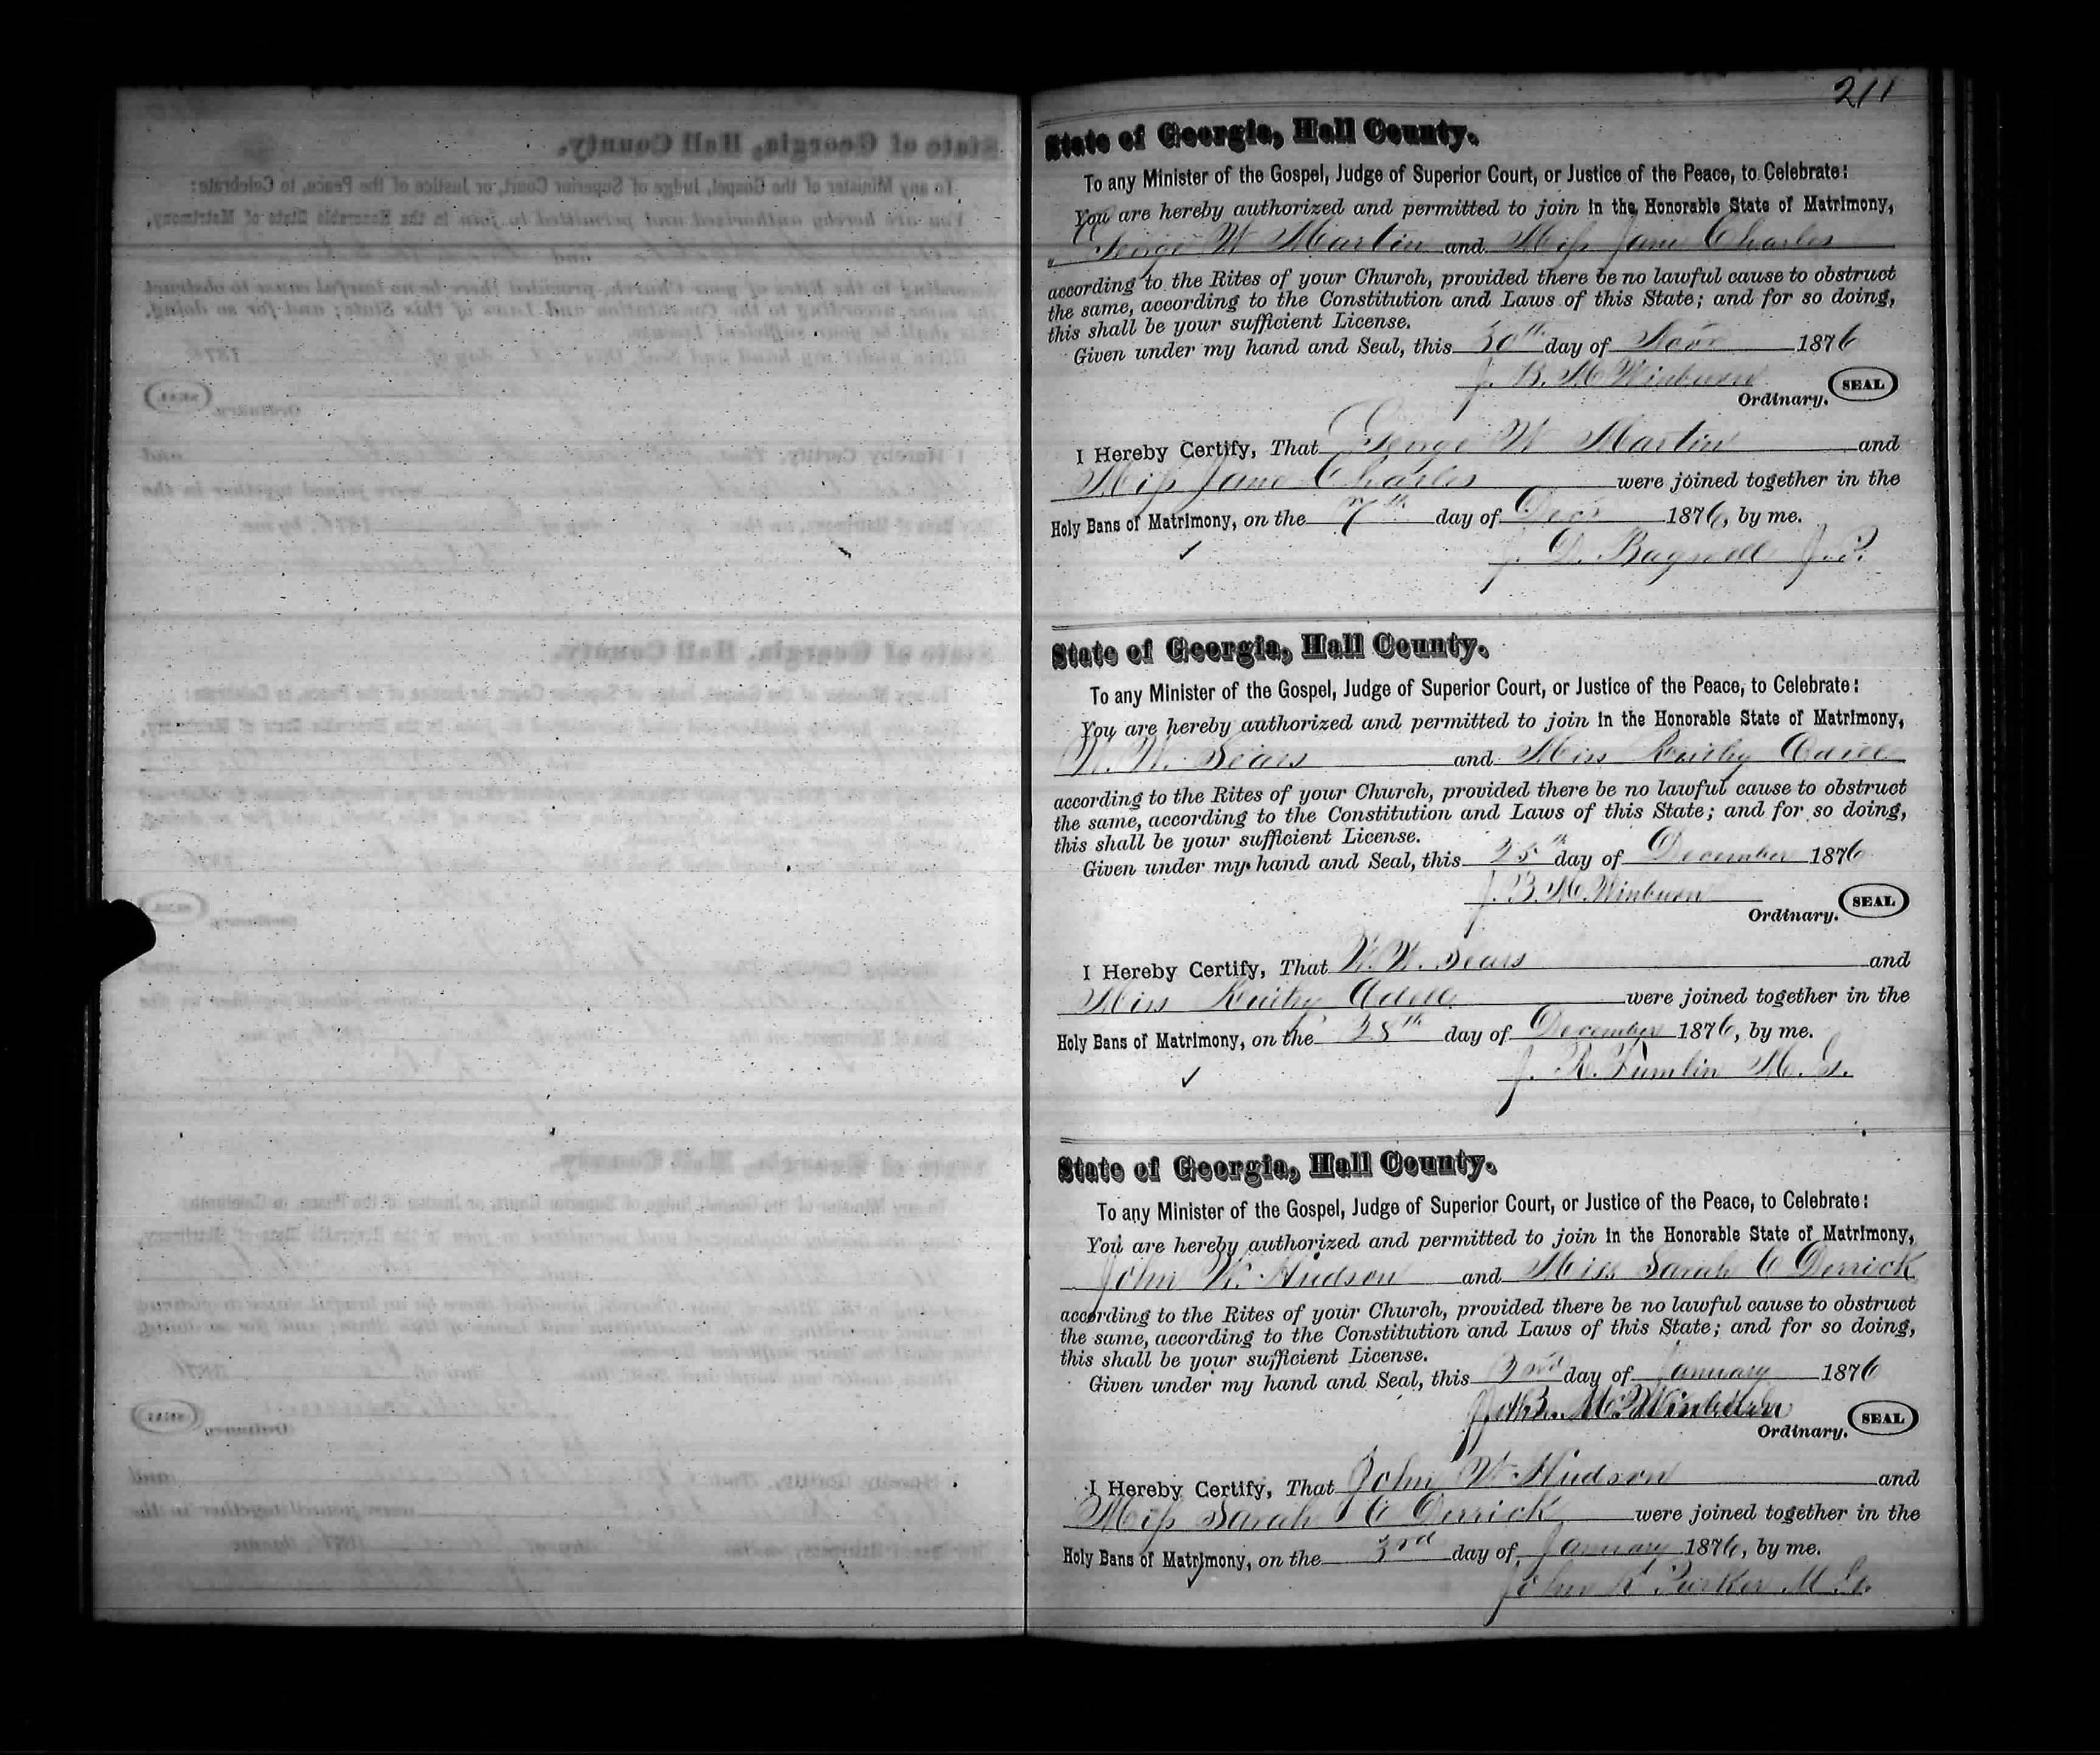 211
State of Georgia, Hall County.
To any Minister of the Gospel, Judge of Superior Court, or Justice of the Peace, to Celebrate:
You are hereby authorized and permitted to join in the Honorable State of Matrimony,
George W Martin and Miss Jane Charles
according to the Rites of your Church, provided there be no lawful cause to obstruct
the same, according to the Constitution and Laws of this State; and for so doing,
this shall be your sufficient License.
Given under my hand and Seal, this 30th day of Novr 1876
J. B. M. Winburn SEAL
Ordinary.
I Hereby Certify, That George W Martin and
Miss Jane Charles were joined together in the
Holy Bans of Matrimony, on the 7th day of Decr 1876, by me.
J. D. Bagwell J. P.
State of Georgia, Hall County.
To any Minister of the Gospel, Judge of Superior Court, or Justice of the Peace, to Celebrate:
You are hereby authorized and permitted to join in the Honorable State of Matrimony,
W. W. Sears and Miss Odell
according to the Rites of your Church, provided there be no lawful cause to obstruct
the same, according to the Constitution and Laws of this State; and for so doing,
this shall be your sufficient License.
Given under my hand and Seal, this 25th day of December 1876
J. B. M. Winburn SEAL
Ordinary.
I Hereby Certify, That W. W. Sears and
Miss Odell were joined together in the
Holy Bans of Matrimony, on the 28th day of December 1876, by me.
J. R. M. G.
State of Georgia, Hall County.
To any Minister of the Gospel, Judge of Superior Court, or Justice of the Peace, to Celebrate:
You are hereby authorized and permitted to join in the Honorable State of Matrimony,
John W. Hudson and Miss Sarah C Derrick
according to the Rites of your Church, provided there be no lawful cause to obstruct
the same, according to the Constitution and Laws of this State; and for so doing,
this shall be your sufficient License.
Given under my hand and Seal, this 2nd day of January 1876
J. B. M. Winburn SEAL
Ordinary.
I Hereby Certify, That John W Hudson and
Miss Sarah C Derrick were joined together in the
Holy Bans of Matrimony, on the 3rd day of January 1876, by me.
John K Parker M. G.